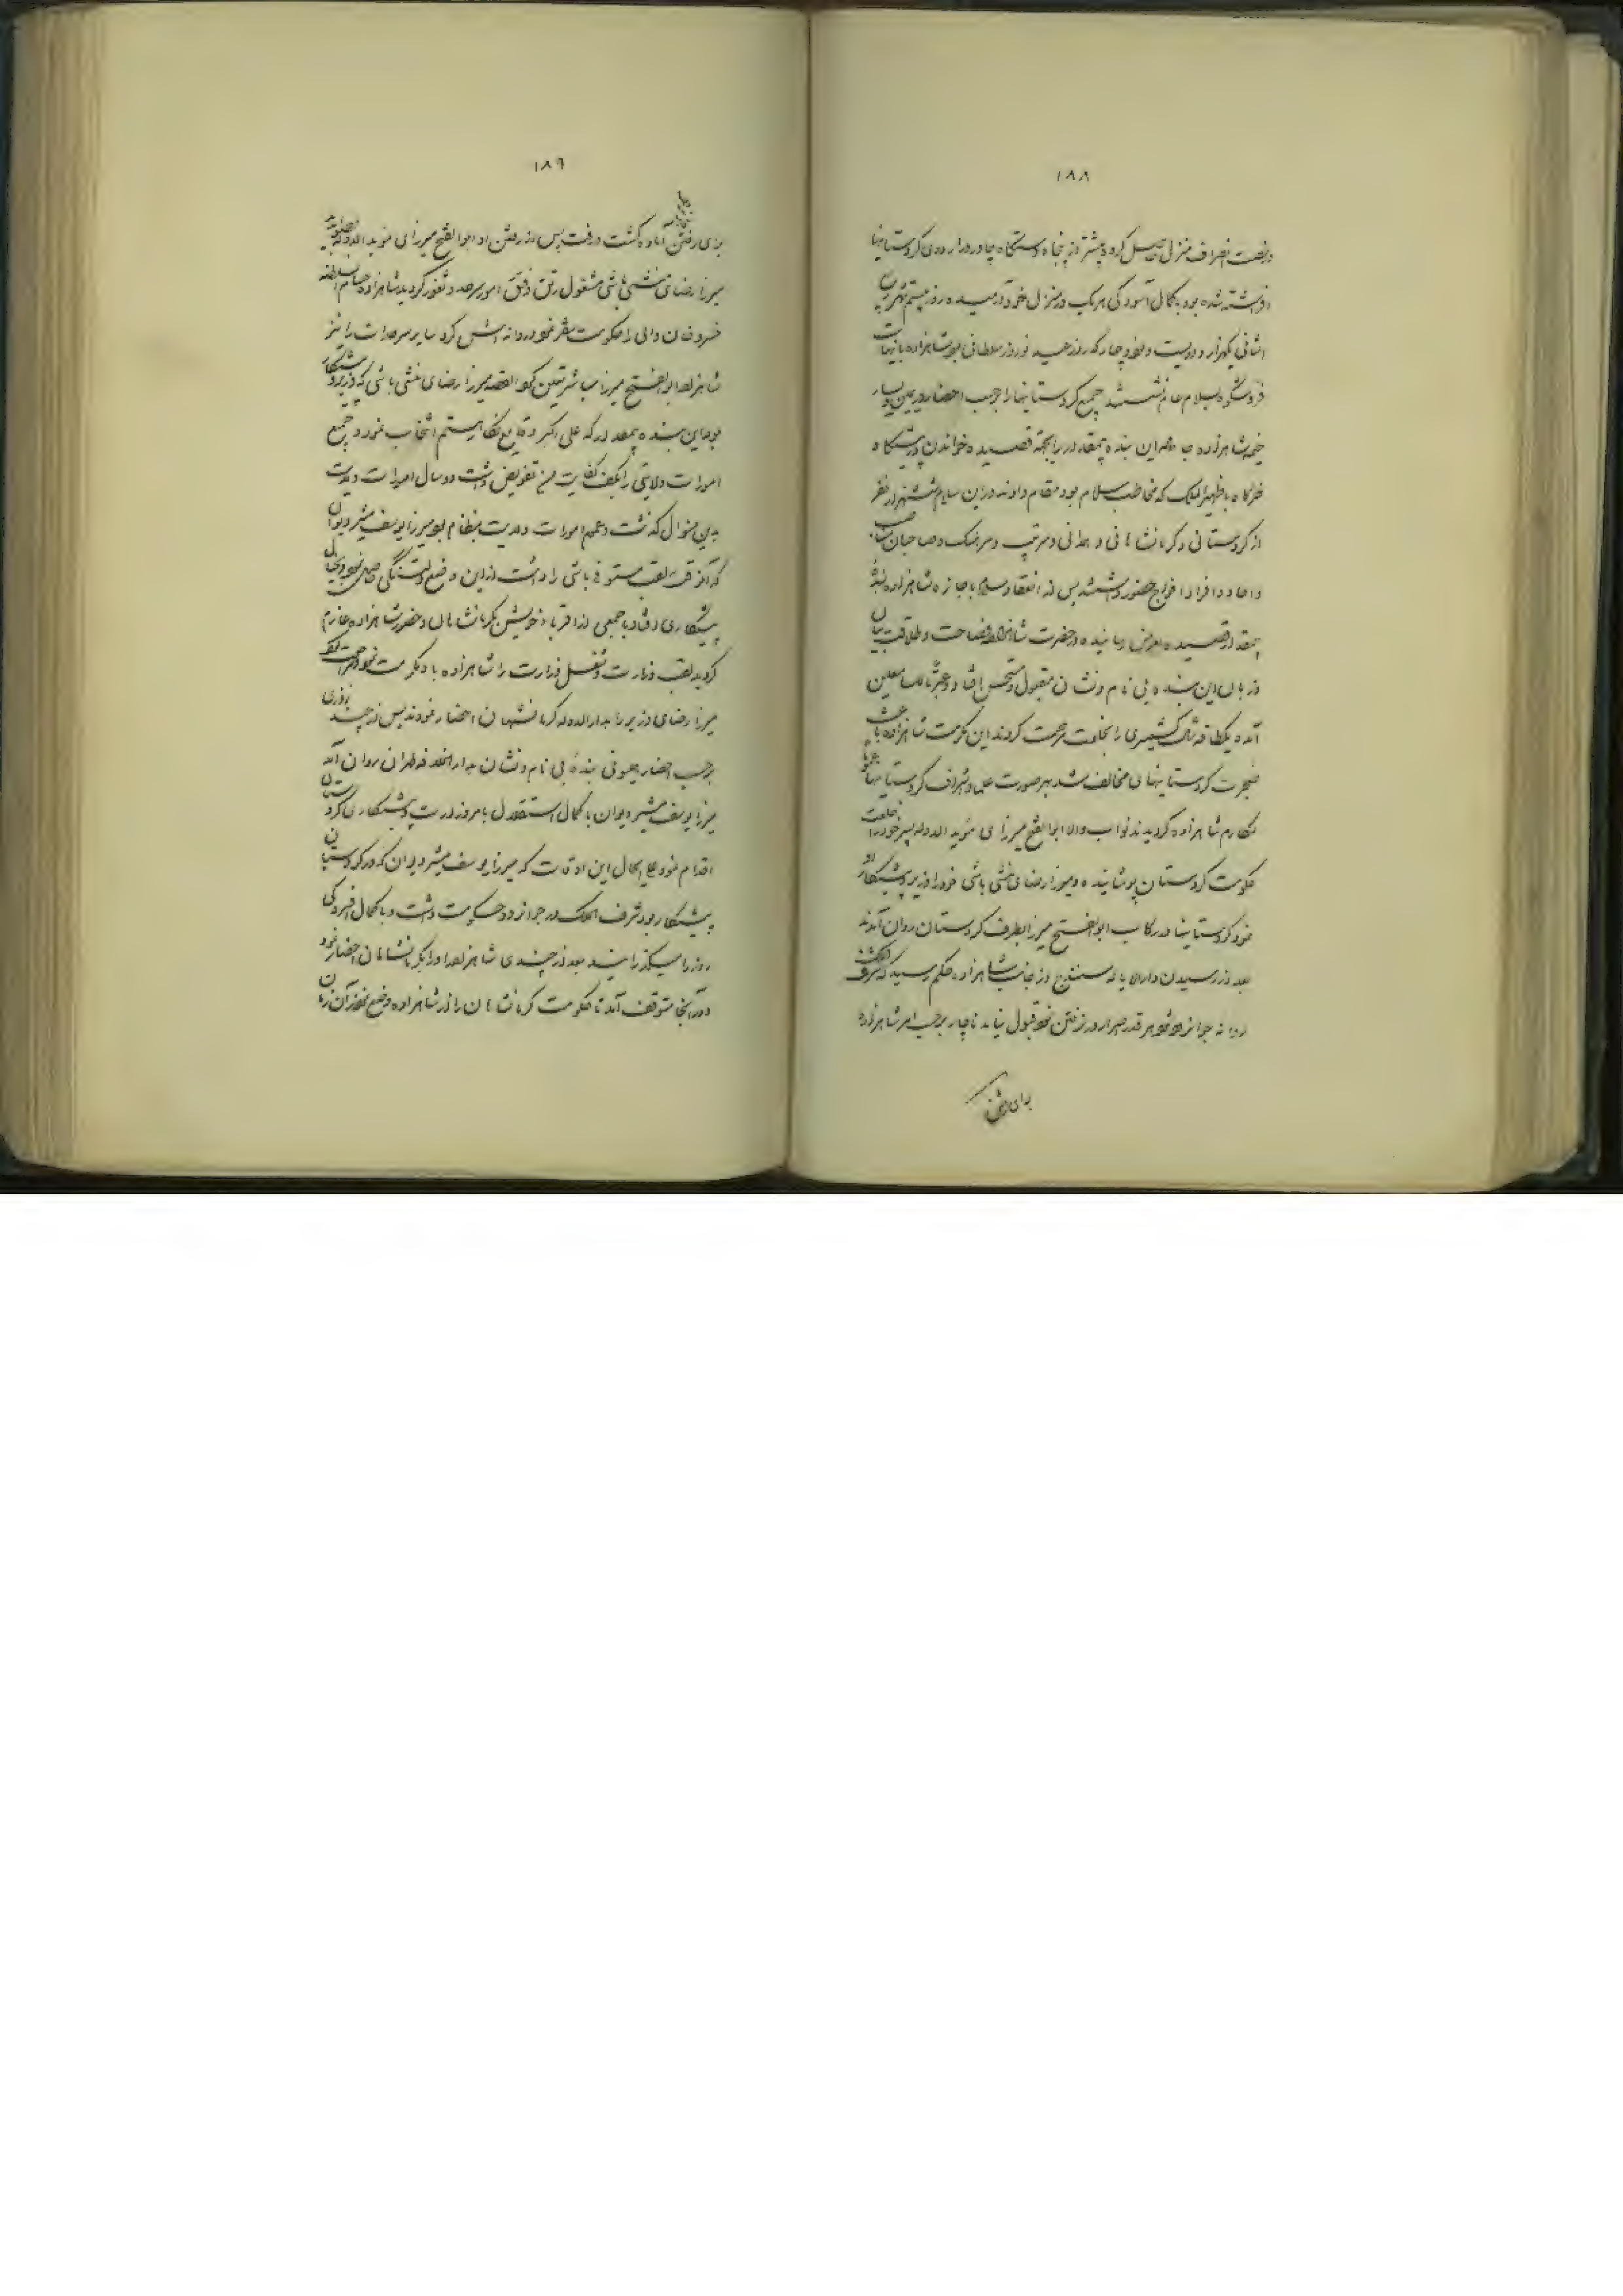 ١٨٨
رخصت انصراف منزل حاصل کرده بیشتر از پنجاه دستگاه چادر در اردوی کردستانیها
افراشته شده بود بکمال آسودگی هر یک در منزل خود آرمیده روز بیستم شهر ربیع
الثانی یکهزار و دویست و نود و چهار که روز عید نوروز سلطانی بود شاهزاده با نهایت
فر و شکوه بسلام عام نشستند جمیع کردستانیها را برحسب احضار در یمین و یسار
خیمه شاهزاده جا داده این بنده بیمقدار را بجهة قصیده خواندن در پیشگاه
خرگاه با ظهیرالملک که مخاطب سلام بود مقام دادند در این سلام شش هزار نفر
از کردستانی و کرمانشاهانی و همدانی و سرتیپ و سرهنگ و صاحبان منصب
و آحاد و افراد افواج حضور داشتند پس از انعقاد سلام با اجازه شاهزاده بنده
بیمقدار قصیده بعرض رسانیده در حضرت شاهزاده فصاحت و طلاقت بیان
و زبان این بنده بی نام و نشان مقبول و مستحسن افتاد
آمده یکطاقه شال کشمیری را بخلعت مرحمت کردند این مکرمت شاهزاده باعث
ضجرت کردستانیهای مخالف شد بهر صورت علما و اشراف کردستانیها
مکارم شاهزاده گردیدند نواب والا ابوالفتح میرزای مؤید الدوله پسر خود را خلعت
حکومت کردستان پوشانیده و میرزا رضای منشی باشی خود را وزیر و پیشکار او
نمود کردستانیها در رکاب ابوالفتح میرزا بطرف کردستان روان آمدند
بعد از رسیدن دارالایاله سنندج از جانب شاهزاده حکم رسید که شرف الملک
روانه جوانرود شود هر قدر اصرار در نرفتن نمود قبول نیامد ناچار برحسب امر شاهزاده
برای رفتن
١٨٩
برای رفتن آماده گشت و رفت پس از رفتن او ابوالفتح میرزای مؤید الدوله
میرزا رضای منشی باشی مشغول رتق و فتق امور سرحد و ثغور گردید شاهزاده حسام السلطنه
خسروخان والی را بحکومت سقز نمود روانه اش کرد سایر سرحدات را نیز
شاهزاده ابوالفتح میرزا مباشر تعیین کرد القصه میرزا رضای منشی باشی که وزیر و پیشکار
بود این بنده بیمقدار که علی اکبر وقایع نگار هستم انتخاب نمود و جمیع
امورات ولایتی را بکف کفایت من تفویض داشت دو سال امورات ولایت
بدین منوال گذشت و عموم امورات ولایت بنظام بود میرزا یوسف مشیر دیوان
که آنوقت لقب مستوفی باشی را داشت از این وضع دلتنگی حاصل نمود و بخیال
پیشکاری افتاد با جمعی از اقرباء خویش بکرمانشاهان و حضور شاهزاده عازم
گردید لقب وزارت و شغل وزارت را شاهزاده با و مکرمت نمود
میرزا رضای وزیر را بدارالدوله کرمانشاهان احضار نمودند پس از چند روزی
برحسب احضار همیونی بنده بی نام و نشان بدارالخلافه طهران روان آمد
میرزا یوسف مشیر دیوان با کمال استقلال بامر وزارت و پیشکاری کردستان
اقدام نمود علی ایحال این اوقات که میرزا یوسف مشیر دیوان در کردستان
پیشکار بود شرف الملک در جوانرود حکومت داشت و با کمال افسردگی
روز را میگذرانید بعد از چندی شاهزاده او را بکرمانشاهان احضار نمود
در آنجا متوقف آمد تا حکومت کرمانشاهان را از شاهزاده وضع نمودند آن زمان